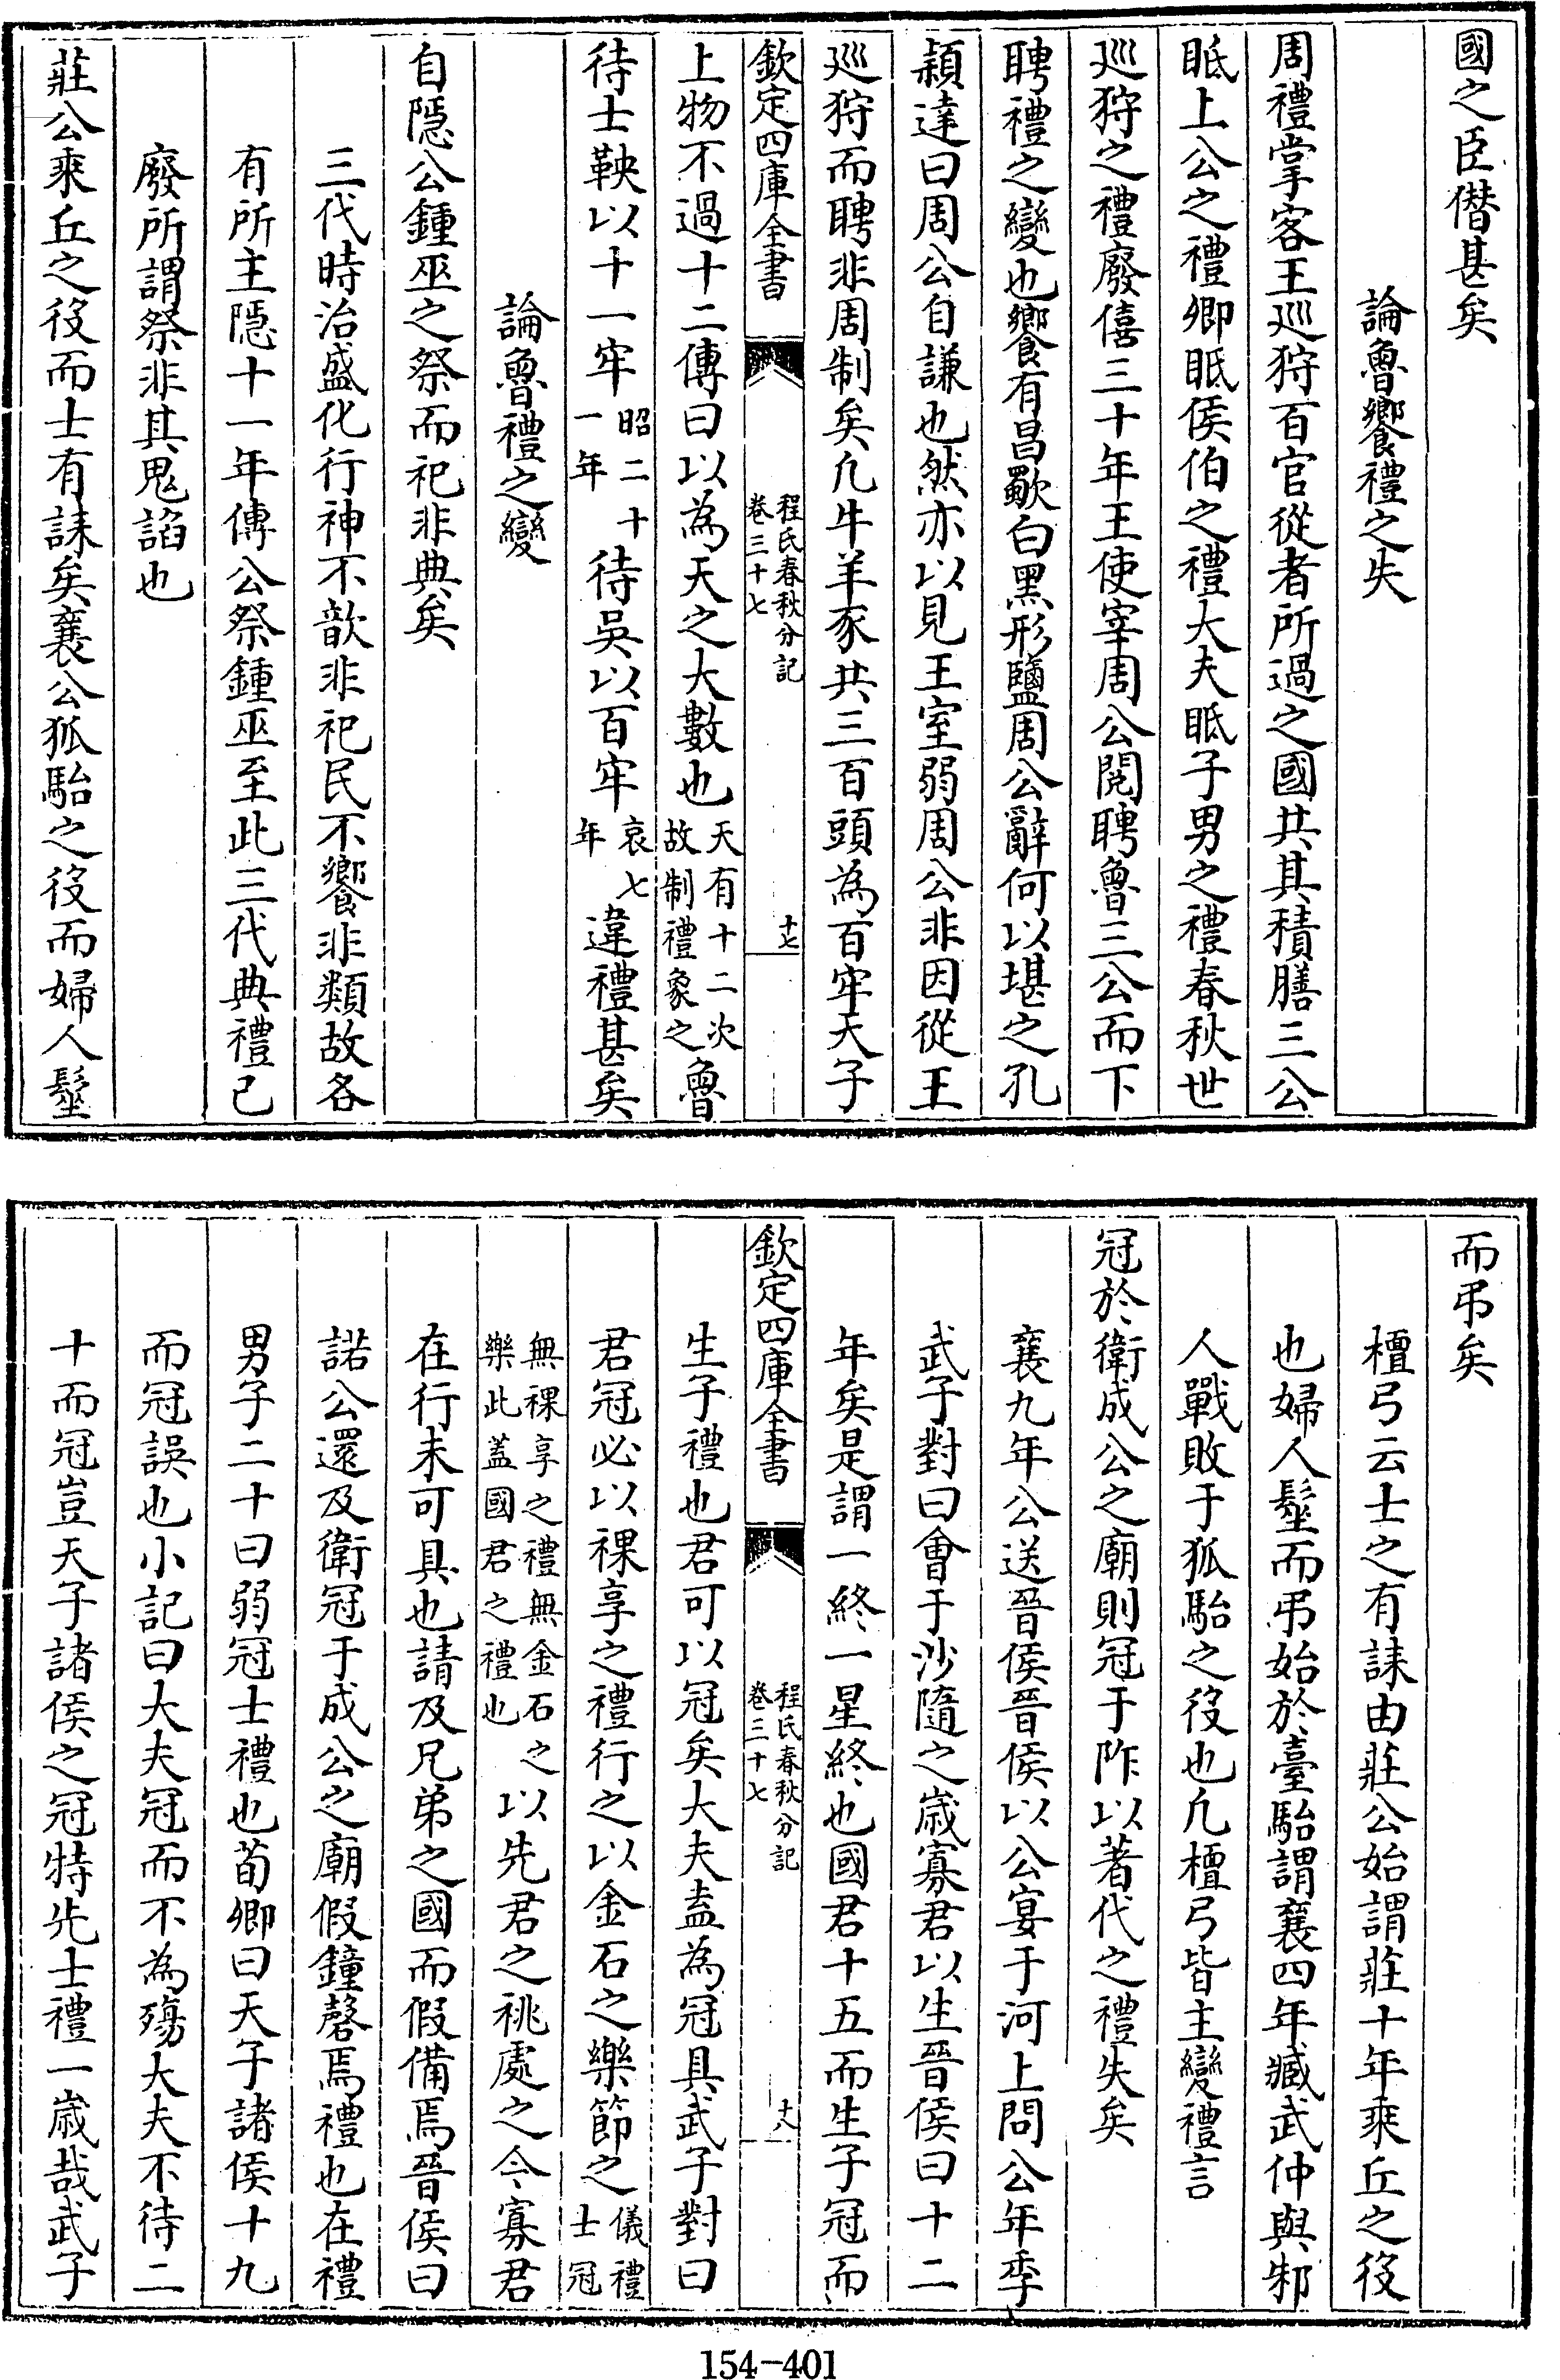 國之臣僣甚矣
論魯饗禮之失
周禮掌客王巡狩百官從者所過之國共其積膳三公
眂上公之禮卿眂侯伯之禮大夫眂子男之禮春秋世
巡狩之禮廢僖三十年王使宰周公閱聘魯三公而下
聘禮之變也饗有昌歜白黑形鹽周公辭何以堪之孔
穎達曰周公自謙也然亦以見王室弱周公非因從王
巡狩而聘非周制矣凡牛羊豕共三百頭為百牢天子
欽定四庫全書
程氏春秋分記
卷三十七
十七
上物不過十二傳曰以為天之大數也天有十二次故制禮象之魯
待士鞅以十一牢昭二十一年待吳以百牢哀七年違禮甚矣
論魯禮之變
自隱公鍾巫之祭而祀非典矣
三代時治盛化行神不歆非祀民不饗非類故各
有所主隱十一年傳公祭鍾巫至此三代典禮已
廢所謂祭非其鬼謟也
莊公乘丘之役而士有誄矣襄公狐駘之役而婦人髽
而弔矣
檀弓云士之有誄由莊公始謂莊十年乘丘之役
也婦人髽而弔始於臺駘謂襄四年臧武仲與邾
人戰敗于狐駘之役也凡檀弓皆主變禮言
冠於衛成公之廟則冠于阼以著代之禮失矣
襄九年公送晉侯晉侯以公宴于河上問公年季
武子對曰會于沙隨之歲寡君以生晉侯曰十二
年矣是謂一終一星終也國君十五而生子冠而
欽定四庫全書
程氏春秋分記
卷三十七
十八
生子禮也君可以冠矣大夫盍為冠具武子對曰
君冠必以祼享之禮行之以金石之樂節之儀禮士冠
無祼享之禮無金石之樂此蓋國君之禮也以先君之祧處之今寡君
在行未可具也請及兄弟之國而假備焉晉侯曰
諾公還及衛冠于成公之廟假鐘磬焉禮也在禮
男子二十曰弱冠士禮也荀卿曰天子諸侯十九
而冠誤也小記曰大夫冠而不為殤大夫不待二
十而冠豈天子諸侯之冠特先士禮一歲哉武子
154-401